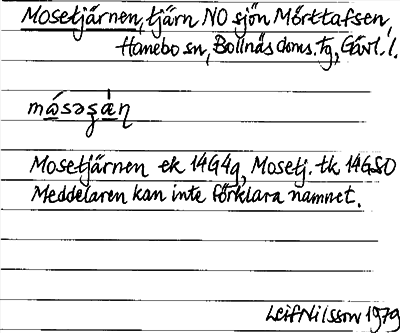 Mosetjärnen, tjärn NO sjön Mörttafsen,
Hanebo sn, Bollnäs doms. tg, Gävl. l.
Mosetjärnen ek 14G4g, Mosetj. tk 14GSO
Meddelaren kan inte förklara namnet.
Leif Nilsson 1979